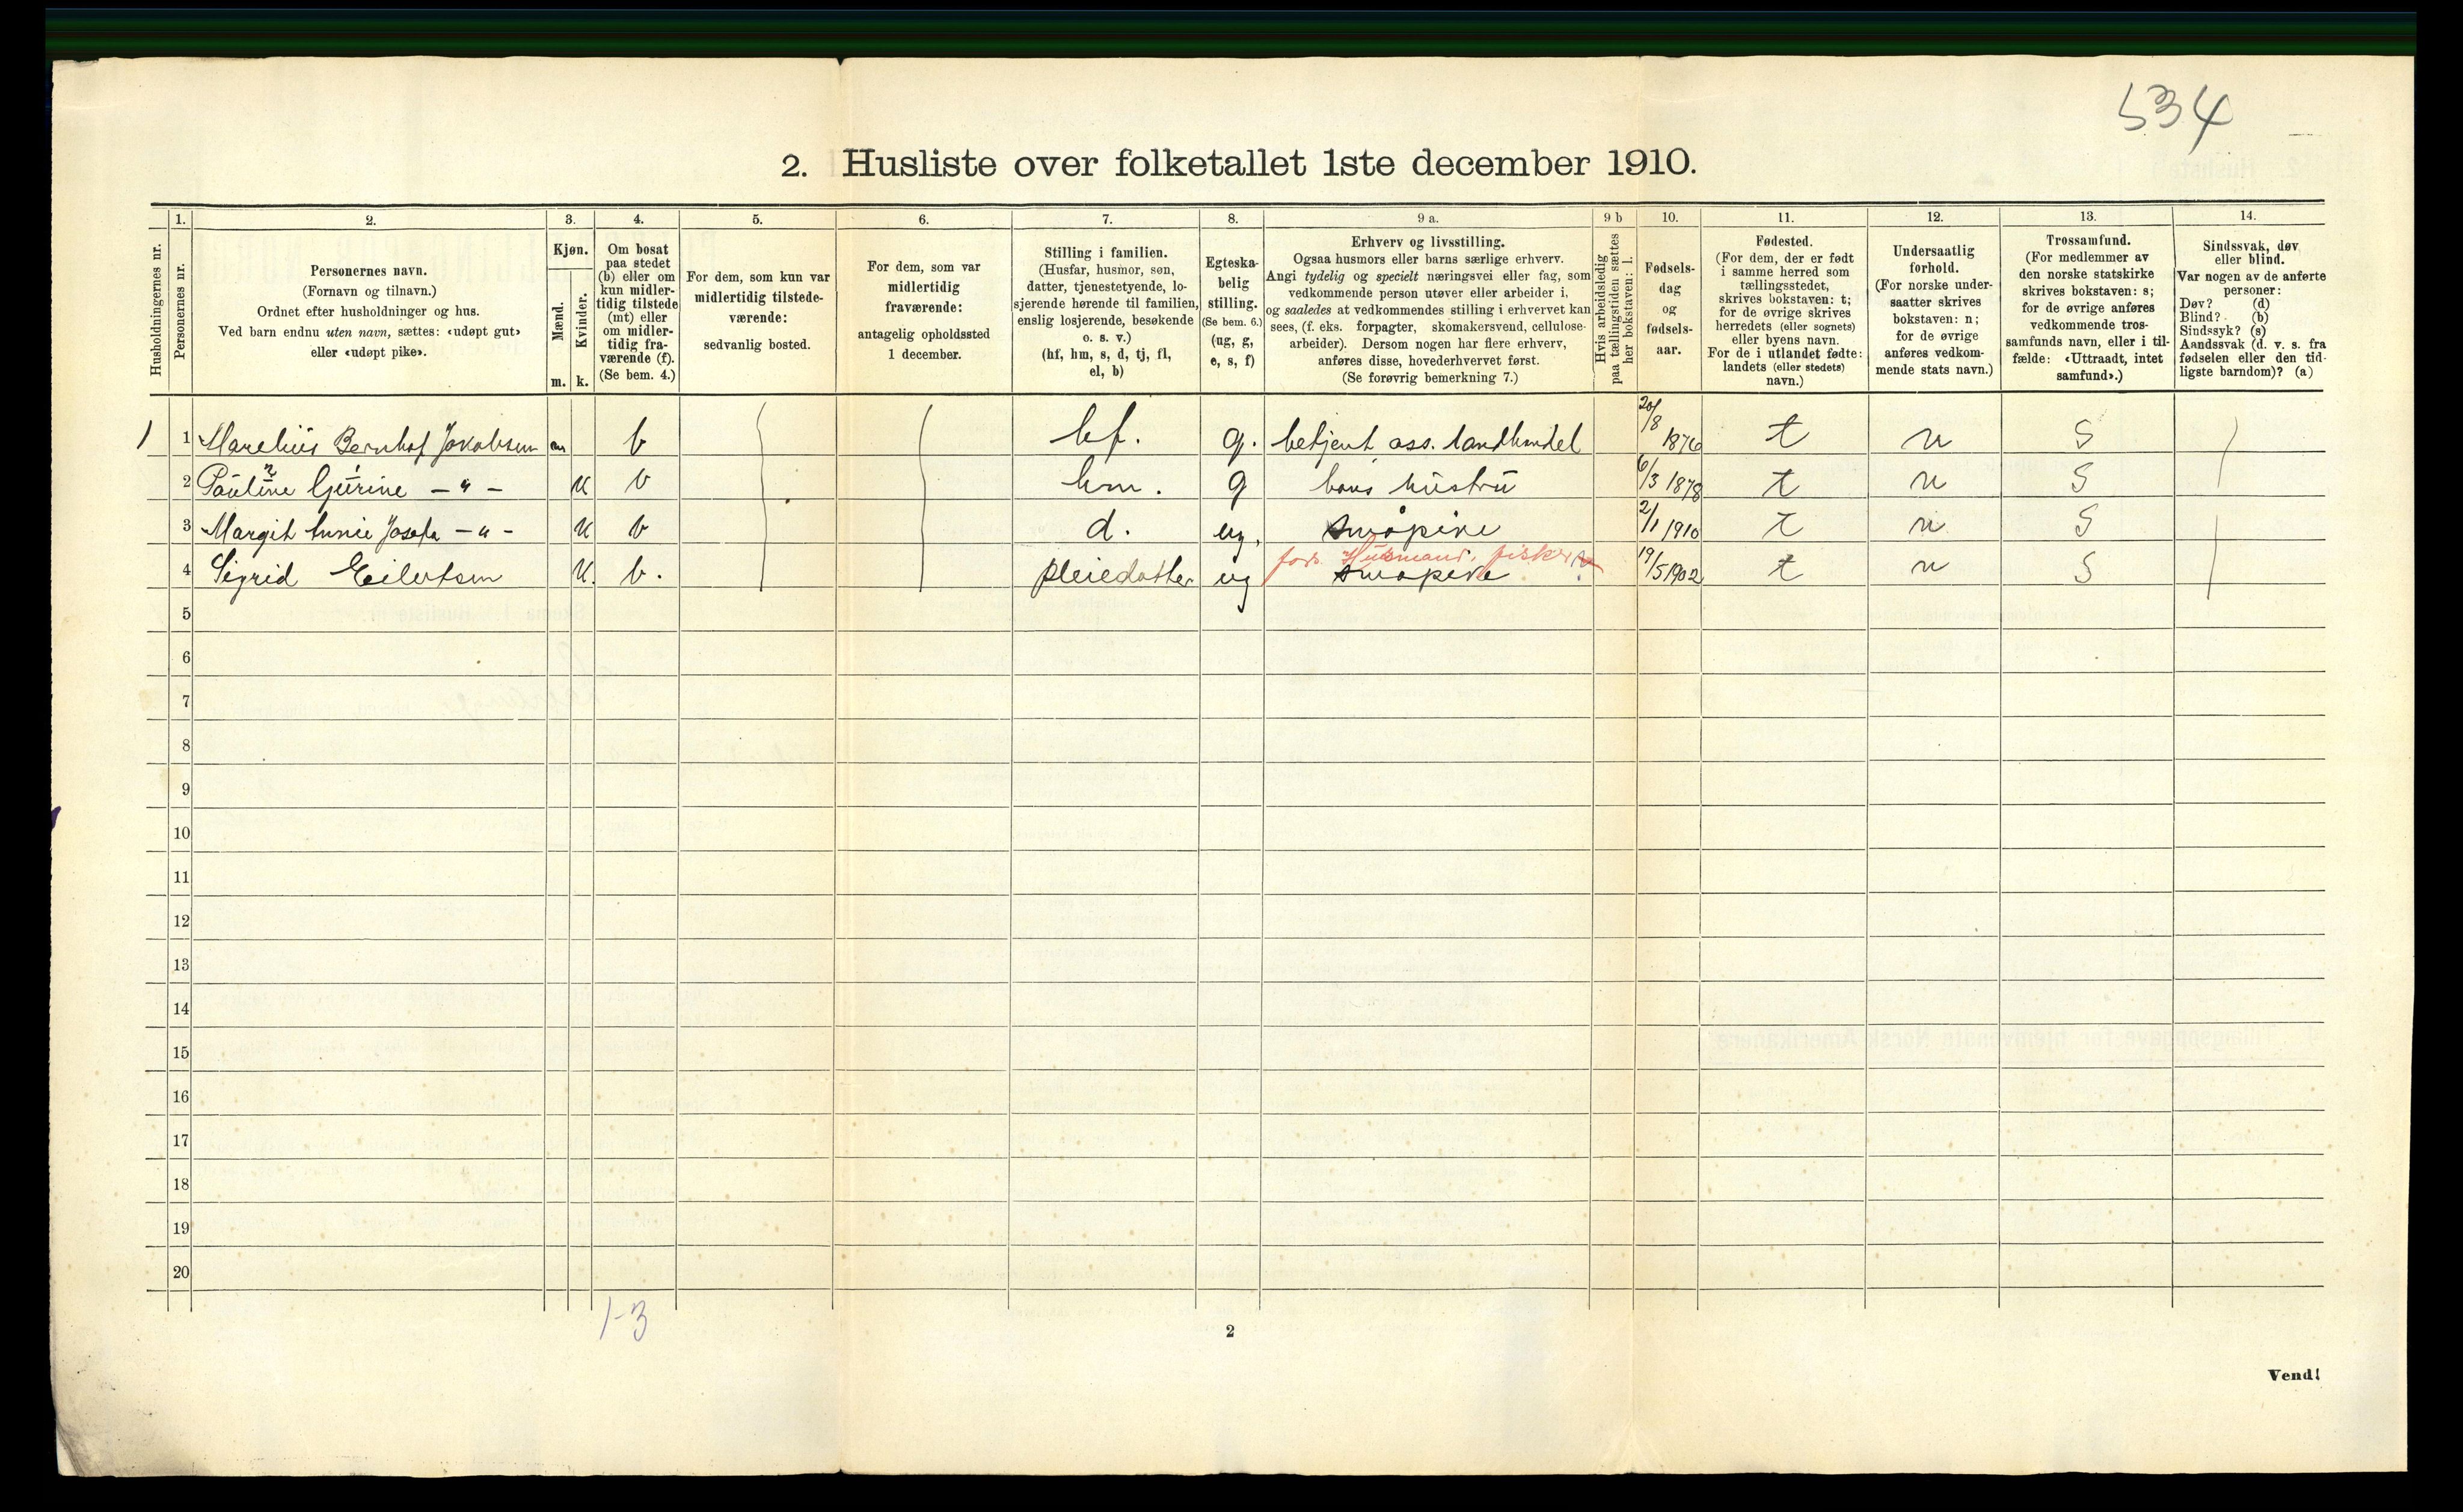 534
2. Husliste over folketallet 1ste december 1910.
Husholdningernes nr.
1.
Personernes nr.
2.
Personernes navn.
(Fornavn og tilnavn.)
Ordnet efter husholdninger og hus.
Ved barn endnu uten navn, sættes: «udøpt gut»
eller «udøpt pike».
3.
Kjøn.
Mænd.
Kvinder.
m. k.
4.
Om bosat
paa stedet
(b) eller om
kun midler-
tidig tilstede
(mt) eller
om midler-
tidig fra-
værende (f).
(Se bem. 4.)
5.
For dem, som kun var
midlertidig tilstede-
værende:
sedvanlig bosted.
6.
For dem, som var
midlertidig
fraværende:
antagelig opholdssted
1 december.
7.
Stilling i familien.
(Husfar, husmor, søn,
datter, tjenestetyende, lo-
sjerende hørende til familien,
enslig losjerende, besøkende
o. s. v.)
(hf, hm, s, d, tj, fl,
el, b)
8.
Egteska-
belig
stilling.
(Se bem. 6.)
(ug, g,
e, s, f)
9 a.
Erhverv og livsstilling.
Ogsaa husmors eller barns særlige erhverv.
Angi tydelig og specielt næringsvei eller fag, som
vedkommende person utøver eller arbeider i,
og saaledes at vedkommendes stilling i erhvervet kan
sees, (f. eks. forpagter, skomakersvend, cellulose-
arbeider). Dersom nogen har flere erhverv,
anføres disse, hovederhvervet først.
(Se forøvrig bemerkning 7.)
9 b
Hvis arbeidsledig
paa tællingstiden sættes
her bokstaven: l.
10.
Fødsels-
dag
og
fødsels-
aar.
11.
Fødested.
(For dem, der er født
i samme herred som
tællingsstedet,
skrives bokstaven: t;
for de øvrige skrives
herredets (eller sognets)
eller byens navn.
For de i utlandet fødte:
landets (eller stedets)
navn.)
12.
Undersaatlig
forhold.
(For norske under-
saatter skrives
bokstaven: n;
for de øvrige
anføres vedkom-
mende stats navn.)
13.
Trossamfund.
(For medlemmer av
den norske statskirke
skrives bokstaven: s;
for de øvrige anføres
vedkommende tros-
samfunds navn, eller i til-
fælde: «Uttraadt, intet
samfund».)
14.
Sindssvak, døv
eller blind.
Var nogen av de anførte
personer:
Døv? (d)
Blind? (b)
Sindssyk? (s)
Aandssvak (d. v. s. fra
fødselen eller den tid-
ligste barndom)? (a)
1 1 Marelius Bernhof Jakobsen m b hf. g. betjent, ass. landhandel 20/8 1876 t n S
2 Pauline Gurine — " — k b hm. g hans hustru 6/3 1878 t n S
3 Margit Annie Josefa — " — k b d. ug. småpike 2/1 1910 t n S
fors. Husmand, fisker
4 Sigrid Eilertsen k. b. pleiedatter ug småpike 19/5 1902 t n S
5
6
7
8
9
10
11
12
13
14
15
16
17
18
19
20
1-3
2
Vend!